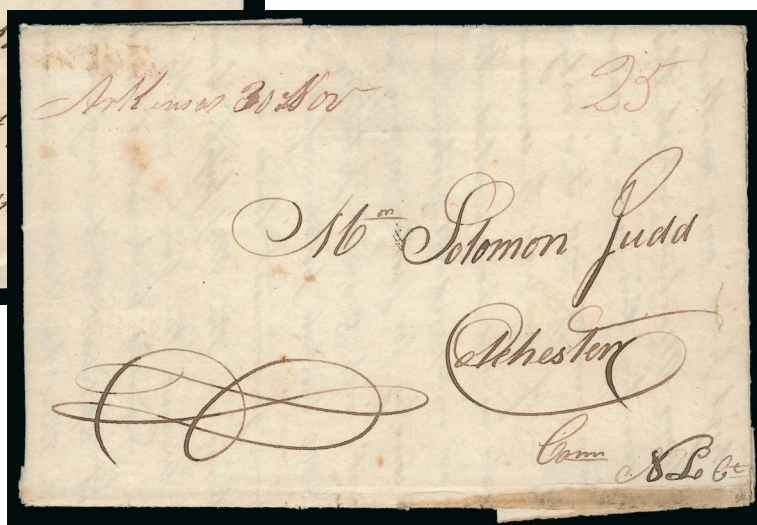 Arkansas 30 Nov 25
Mr Solomon Judd
Colchester
Conn